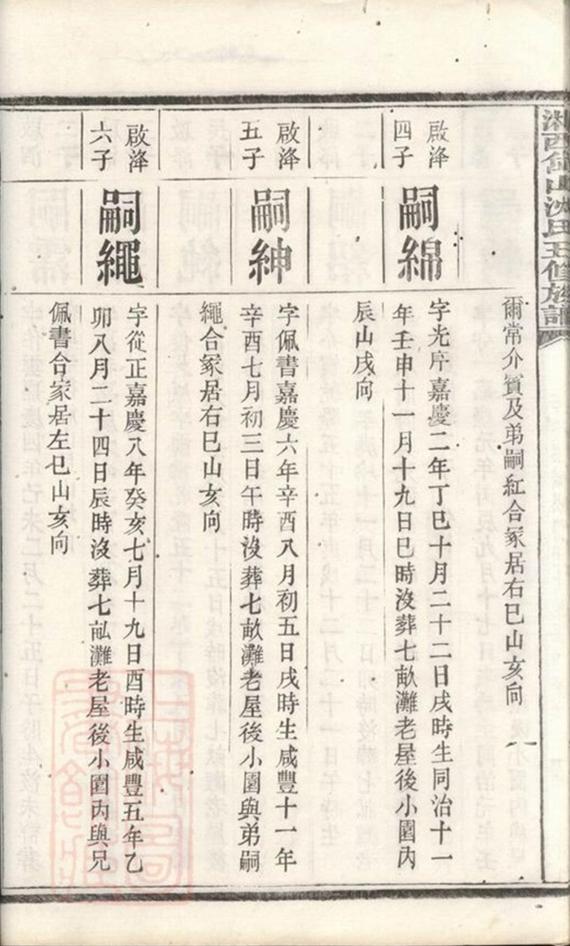 爾常介賓及弟嗣紅合冢居右巳山亥向
啟泽
四子
嗣綿
字光序嘉慶二年丁巳十月二十二日戌時生同治十一
年壬申十一月十九日巳時沒葬七畝灘老屋後小園內
辰山戌向
啟泽
五子
嗣紳
字佩書嘉慶六年辛酉八月初五日戌時生咸豐十一年
辛酉七月初三日午時沒葬七畝灘老屋後小園與弟嗣
繩合冢居右巳山亥向
啟泽
六子
嗣繩
字從正嘉慶八年癸亥七月十九日酉時生咸豐五年乙
卯八月二十四日辰時沒葬七畝灘老屋後小園內與兄
佩書合冢居左巳山亥向